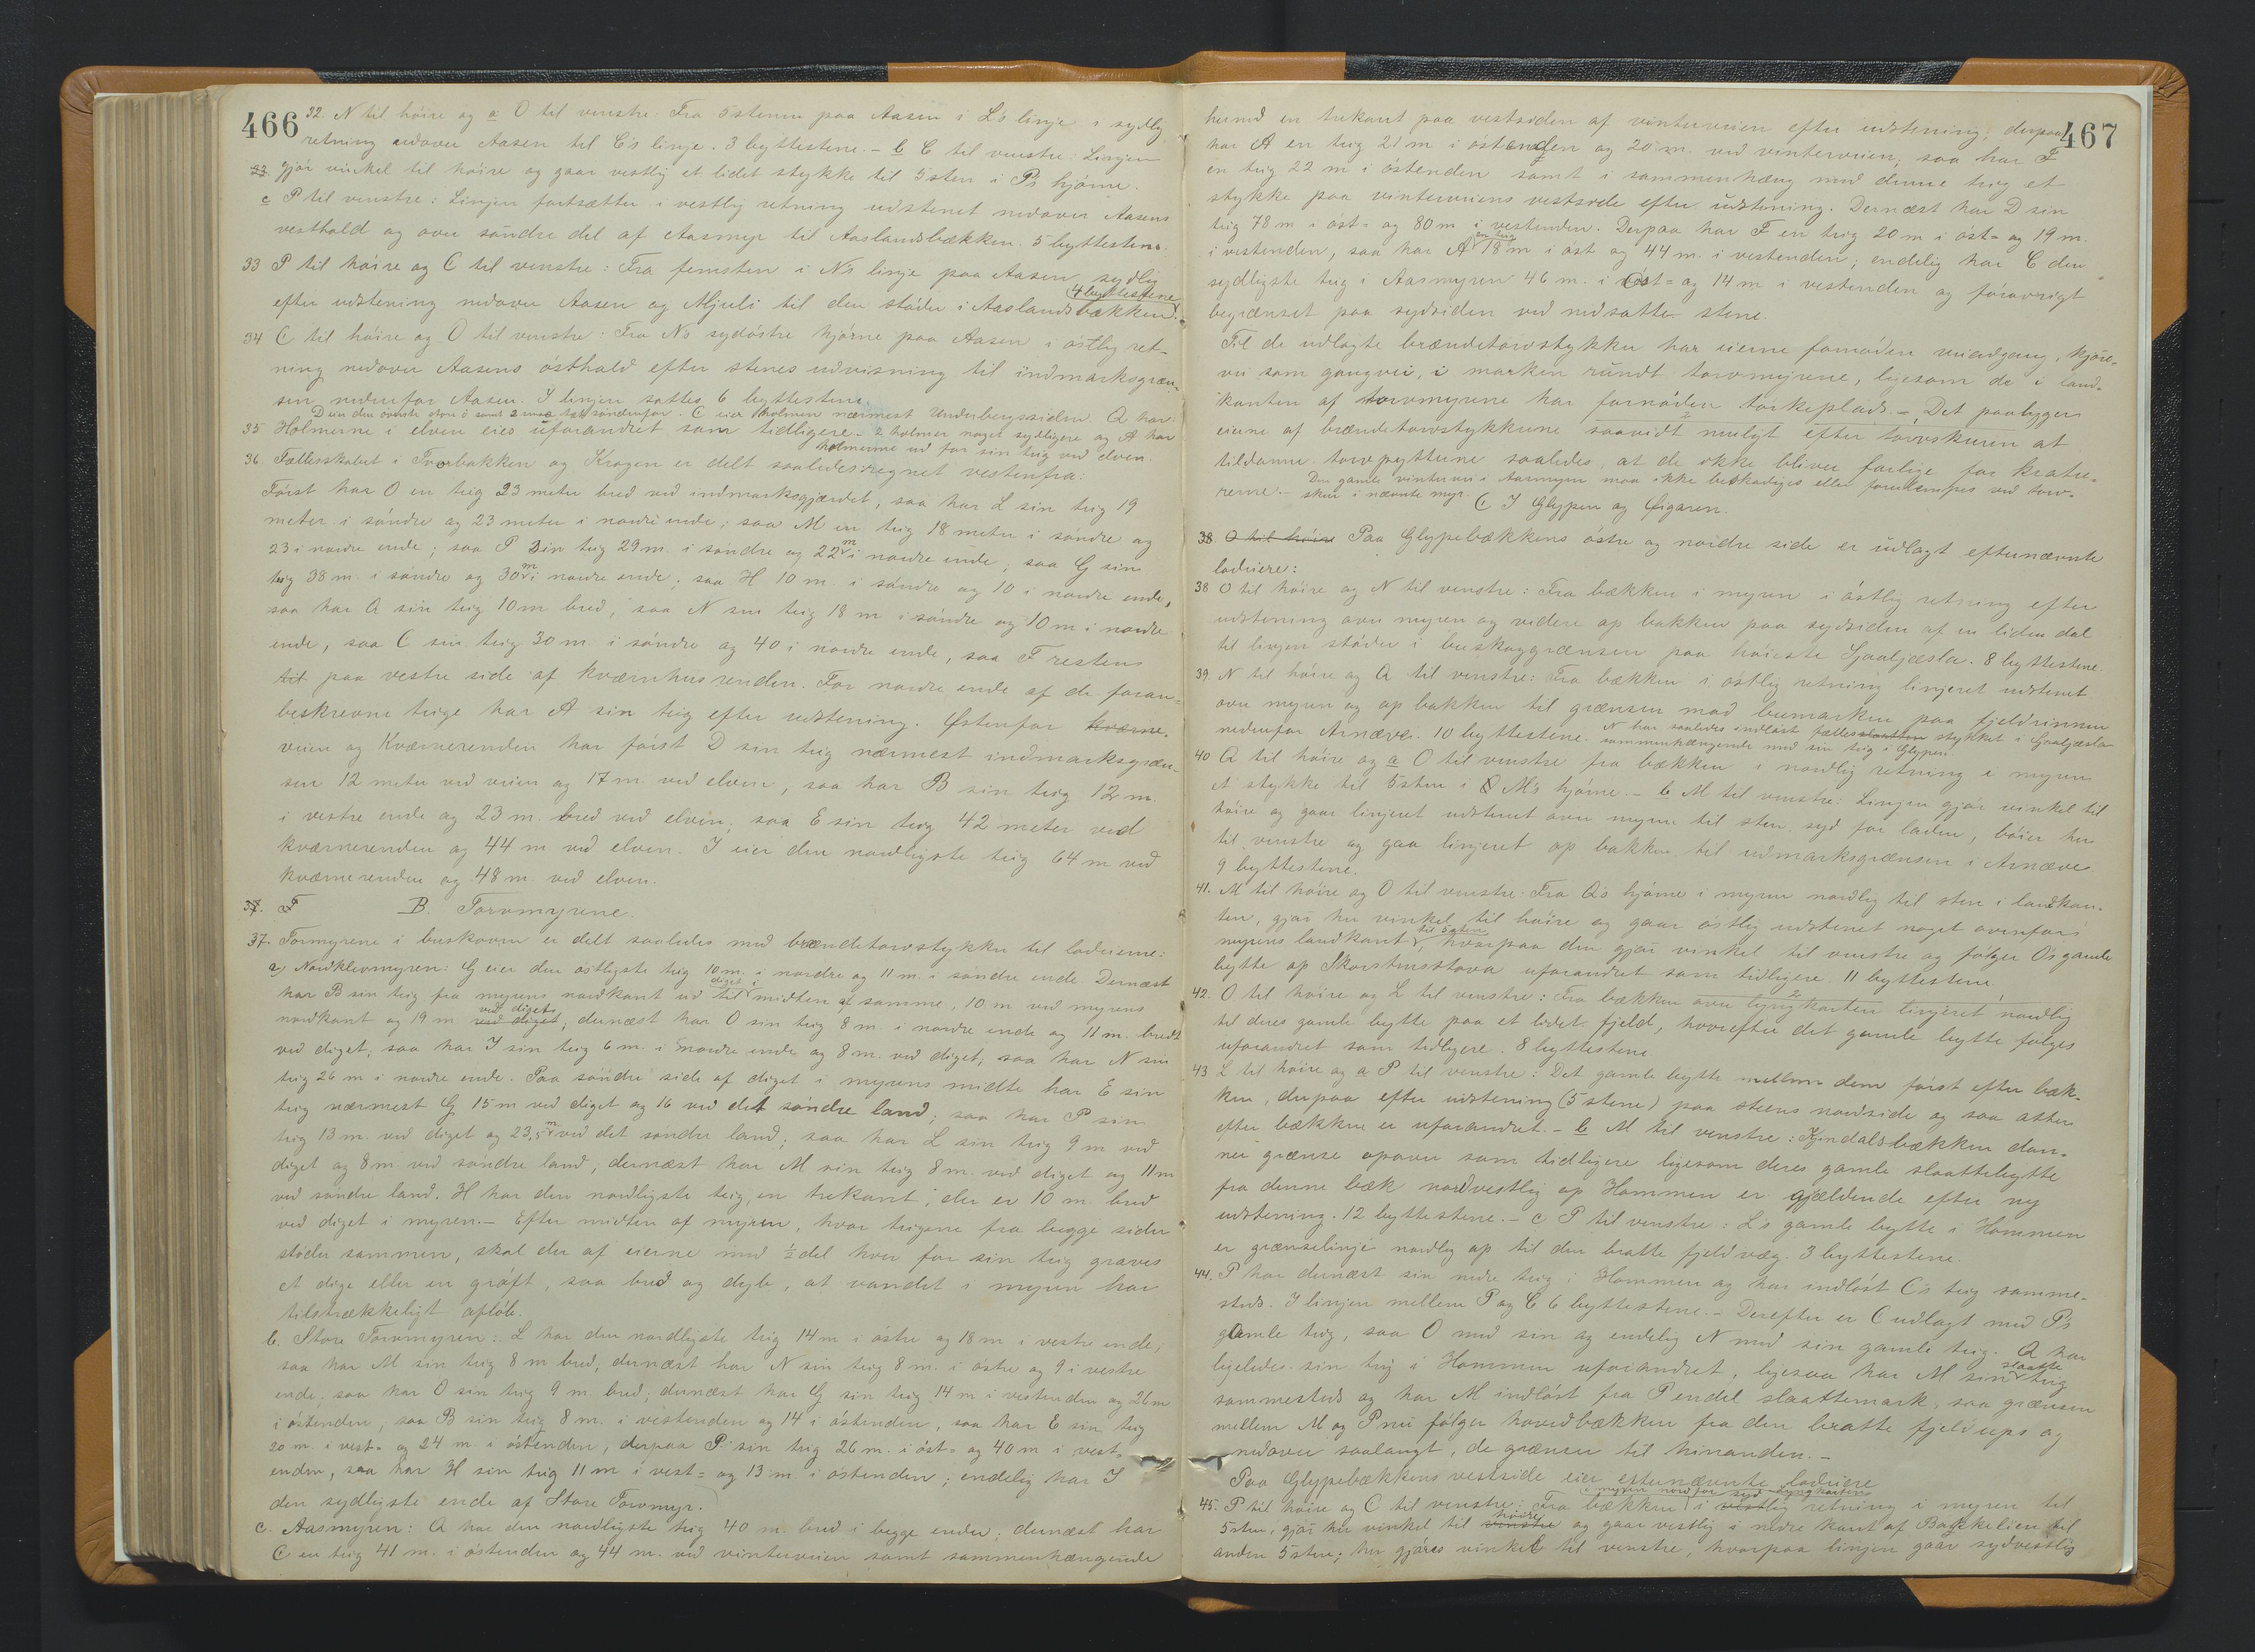 466
32. N til höire og a O til venstre Fra 5stenen paa Aasen i L's linje i sydlig
retning nedover Aasen til C's linje. 3 byttestene. - b C til venstre: Linjen
gjör vinkel til höire og gaar vestlig et lidet stykke til 5sten i P's hjörne.
c P til venstre: Linjen fortsætter i vestlig retning udstenet nedover Aasens
vesthald og over söndre del af Aasmyr til Aaslandsbækken. 5 byttestene.
33 P til höire og C til venstre: Fra femsten i N's linje paa Aasen sydlig
efter udstening nedover Aasen og Mjuli til den stöder i Aaslandsbækken. 4 byttestene
34 C til höire og O til venstre: Fra N's sydöstre hjörne paa Aasen i östlig ret-
ning nedover Aasens östhald efter stenes udvisning til indmarksgræn-
sen nedenfor Aasen. I linjen sattes 6 byttestene.
D den överste store ö samt 2 smaa tæt söndenfor. C eier holmen nærmest Underbergssiden Q har
35 Holmerne i elven eies uforandret som tidligere - 2 holmer noget sydligere og A har
holmerne ud for sin teig ved elven.
36. Fællesskabet i Tverbakken og Kragen er delt saaledes regnet vestenfra:
Först har O en teig 23 meter bred ved indmarksgjærdet, saa har L sin teig 19
meter i söndre og 23 meter i nordre ende; saa M en teig 18 meter i söndre og
23 i nordre ende; saa P sin teig 29 m. i söndre og 22 m i nordre ende; saa G sin
teig 38 m. i söndre og 30 m i nordre ende; saa H 10 m. i söndre og 10 i nordre ende,
saa har Q sin teig 10 m bred, saa N sin teig 18 m i söndre og 10 m i nordre
ende, saa C sin teig 30 m. i söndre og 40 i nordre ende, saa F resten
til paa vestre side af kværnhusrenden. For nordre ende af de foran-
beskrevne teige har A sin teig efter udstening. Östenfor kværne-
veien og Kværnerenden har först D sin teig nærmest indmarksgræn-
sen 12 meter ved veien og 17 m. ved elven, saa har B sin teig 12 m.
i vestre ende og 23 m. bred ved elven, saa E sin teig 42 meter ved
kværnerenden og 44 m ved elven. I eier den nordligste teig 64 m ved
kværnerenden og 48 m. ved elven.
37. F B. Torvmyrene.
37. Torvmyrene i buskoven er delt saaledes med brændetorvstykker til lodeierne:
a) Nordklevmyren: G eier den östligste teig 10 m. i nordre og 11 m. i söndre ende. Dernæst
har B sin teig fra myrens nordkant ud til diget i midten af samme, 10 m ved myrens
nordkant og 19 m ved diget ved diget; dernæst har O sin teig 8 m. i nordre ende og 11 m. bredt
ved diget; saa har I sin teig 6 m. i nordre ende og 8 m. ved diget; saa har N sin
teig 26 m i nordre ende. Paa söndre side af diget i myrens midte har E sin
teig nærmest G 15 m ved diget og 16 ved det söndre land; saa har P sin
teig 13 m. ved diget og 23,5 m ved det söndre land; saa har L sin teig 9 m ved
diget og 8 m ved söndre land; dernæst har M sin teig 8 m. ved diget og 11 m
ved söndre land. H har den nordligste teig, en trekant, der er 10 m. bred
ved diget i myren. - Efter midten af myren, hvor teigene fra begge sider
stöder sammen, skal der af eierne med ½ del hver for sin teig graves
et dige eller en gröft, saa bred og dyb, at vandet i myren har
tilstrækkeligt aflöb.
b. Store Torvmyren: L har den nordligste teig 14 m i östre og 18 m i vestre ende,
saa har M sin teig 8 m bred, dernæst har N sin teig 8 m. i östre og 9 i vestre
ende, saa har O sin teig 9 m. bred; dernæst har G sin teig 14 m i vestenden og 26 m
i östenden, saa B sin teig 8 m. i vestenden og 14 i östenden, saa har E sin teig
20 m. i vest= og 24 m. i östenden, derpaa P sin teig 26 m. i öst= og 40 m i vest-
enden, saa har H sin teig 11 m i vest= og 13 m i östenden; endelig har I
den sydligste ende af Store Torvmyr.
c. Aasmyren: Q har den nordligste teig 40 m. bred i begge ender; dernæst har
C en teig 41 m. i östenden og 44 m. ved vinterveien samt sammenhængende
467
hermed en trekant paa vestsiden af vinterveien efter udstening; derpaa
har A en teig 21 m i östenden og 20 m. ved vinterveien; saa har F
en teig 22 m i östenden samt i sammenhæng med denne teig et
stykke paa vinterveiens vestside efter udstening. Dernæst har D sin
teig 78 m i öst= og 80 m i vestenden. Derpaa har F en teig 20 m i öst= og 19 m.
i vestenden, saa har A en teig 18 m i öst og 44 m. i vestenden; endelig har C den
sydligste teig i Aasmyren 46 m. i öst= og 14 m i vestenden og forövrigt
begrænset paa sydsiden ved nedsatte stene.
Til de udlagte brændetorvstykker har eierne fornöden veiadgang, kjöre-
vei som gangvei, i marken rundt torvmyrene, ligesom de i land-
kanten af torvmyrene har fornöden törkeplads. - Det paalygger
eierne af brændetorvstykkerne saavidt muligt efter torvskuren at
tildanne torvpytterne saaledes, at de ikke bliver farlige for kratu-
rerne. - Den gamle vintervei i Aasmyren maa ikke beskadiges eller forulempes ved torv-
skur i nævnte myr.
C I Glypen og Öigaren.
38 O til höire Paa Glypebækkens östre og nordre side er udlagt efternævnte
lodeiere:
38 O til höire og N til venstre: Fra bækken i myren i östlig retning efter
udstening over myren og videre op bakken paa sydsiden af en liden dal
til linjen stöder i buskoggrænsen paa höieste Gjaaljæsla. 8 byttestene.
39. N til höire og Q til venstre: Fra bækken i östlig retning linjeret udstenet
over myren og op bakken til grænsen mod bumarken paa fjeldrinnen
nedenfor Arnæve. 10 byttestene. N har saaledes indlöst fællesslaatten stykket i Gjaaljæsla
sammenhængende med sin teig i Glypen.
40 Q til höire og a O til venstre fra bækken i nordlig retning i myren
et stykke til 5sten i M's hjörne. - b M til venstre: Linjen gjör vinkel til
höire og gaar linjeret udstenet over myren til sten syd for laden, böier her
til venstre og gaa linjeret op bakken til udmarksgrænsen i Arnæve
9 byttestene.
41. M til höire og O til venstre: Fra Q's hjörne i myren nordlig til sten i landkan-
ten, gjör her vinkel til höire og gaar östlig udstenet noget ovenfor
myrens landkant til 5sten, hvorpaa den gjör vinkel til venstre og fölger O's gamle
bytte op Skorstensstova uforandret som tidligere 11 byttestene.
42. O til höire og L til venstre: Fra bækken over lyngkarten linjeret nordlig
til deres gamle bytte paa et lidet fjeld, hvorefter det gamle bytte fölges
uforandret som tidligere. 8 byttestene
43 L til höire og a P til venstre: Det gamle bytte mellem dem först efter bæk-
ken, derpaa efter udstening (5 stene) paa steens nordside og saa atter
efter bækken er uforandret. - b M til venstre: Kjindalsbækken dan-
ner grænse opover som tidligere ligesom deres gamle slaattebytte
fra denne bæk nordvestlig op Hommen er gjældende efter ny
udstening. 12 byttestene. - c P til venstre: L's gamle bytte i Hommen
er grænselinje nordlig op til den bratte fjeldvæg. 3 byttestene.
44. P har dernæst sin nedre teig i Hommen og har indlöst C's teig samme-
steds. I linjen mellem P og C 6 byttestene. - Derefter er C udlagt med P's
gamle teig, saa O med sin og endelig N med sin gamle teig. Q har
ligeledes sin teig i Hommen uforandret, ligesaa har M sin slaatte teig
sammesteds og har M indlöst fra P endel slaattemark, saa grænsen
mellem M og P nu fölger hovedbækken fra den bratte fjeldups og
nedover saalangt, de grænser til hinanden. -
Paa Glypebækkens vestside eier efternævnte lodeiere
45. P til höire og C til venstre: Fra bækken i myren nord for syd lyngkarten i vestlig retning i myren til
5sten, gjör her vinkel til venstre höire og gaar vestlig i nedre kant af Bakkelien til
anden 5sten; her gjöres vinkel til venstre, hvorpaa linjen gaar sydvestlig